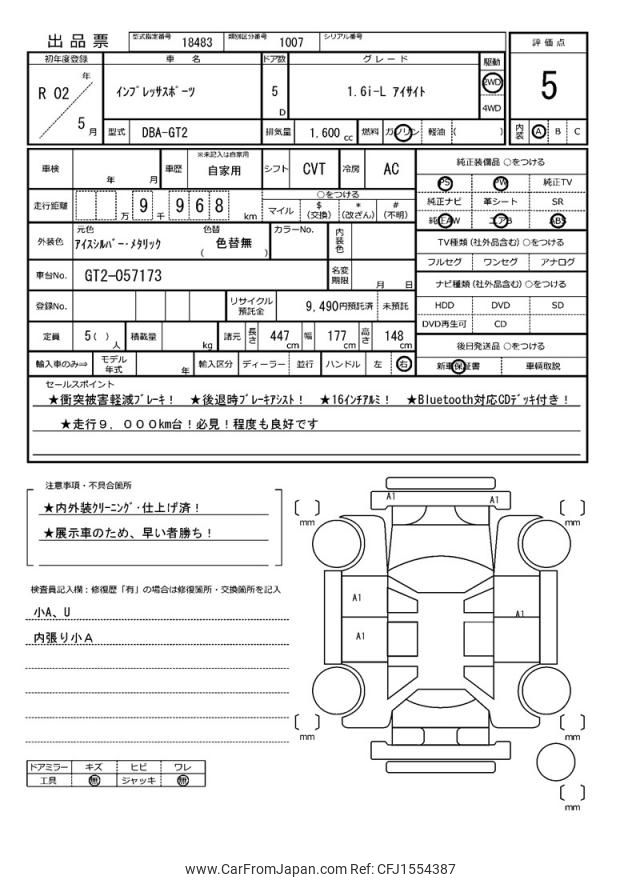 出品票 型式指定番号 18483 類別区分番号 1007 シリアル番号
初年度登録 車名 ドア数 グレード 駆動 評価点
R 02 年 5 月 インプレッサスポーツ 5 D 1.6i-L アイサイト 2WD 4WD 5
型式 DBA-GT2 排気量 1.600 cc 燃料 ガソリン 軽油 ( ) 内装 A B C
車検 年 月 車歴 ※未記入は自家用 自家用 シフト CVT 冷房 AC
走行距離 万 9 千 9 6 8 km ○をつける
マイル $ (交換) * (改ざん) # (不明)
外装色 元色 アイスシルバー・メタリック 色替 ( 色替無 ) カラーNo. 内装色
車台No. GT2-057173 名変期限 月 日
登録No. リサイクル預託金 9,490円預託済 未預託
定員 5( ) 人 積載量 kg 諸元 長さ 447 cm 幅 177 cm 高さ 148 cm
輸入車のみ⇒ モデル年式 年 輸入区分 ディーラー 並行 ハンドル 左 右
純正装備品 ○をつける
PS PW 純正TV
純正ナビ 革シート SR
純正AW エアB ABS
TV種類(社外品含む) ○をつける
フルセグ ワンセグ アナログ
ナビ種類(社外品含む) ○をつける
HDD DVD SD
DVD再生可 CD
後日発送品 ○をつける
新車保証書 車輌取説
セールスポイント
★衝突被害軽減ブレーキ! ★後退時ブレーキアシスト! ★16インチアルミ! ★Bluetooth対応CDデッキ付き!
★走行9,000km台!必見!程度も良好です
注意事項・不具合箇所
★内外装クリーニング・仕上げ済!
★展示車のため、早い者勝ち!
検査員記入欄:修復歴「有」の場合は修復箇所・交換箇所を記入
小A、U
内張り小A
ドアミラー キズ ヒビ ワレ
工具 無 ジャッキ 無
A1 A1
A1 A1
A1
mm mm
mm mm
mm
www.CarFromJapan.com Ref: CFJ1554387